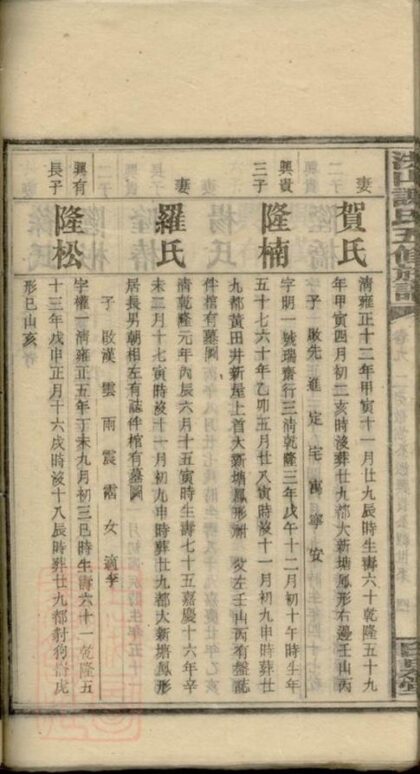 洪山譚氏五修族譜
卷九
妻
賀氏
清雍正十二年甲寅十一月廿九辰時生壽六十乾隆五十九
年甲寅四月初二亥時沒葬廿九都大新塘鳳形右邊壬山丙
子 啟先 進 定 宅 寓 寧 安
興貴
三子
隆楠
字明一號瑞齋行三清乾隆三年戊午十二月初十午時生年
五十七六十年乙卯五月廿八寅時沒十一月初九申時葬廿
九都黃田井新屋上首大新塘鳳形 左壬山丙有盤誌
件棺有墓圖
妻
羅氏
清乾隆元年丙辰六月十五寅時生壽七十五嘉慶十六年辛
未二月十七寅時沒十一月初九申時葬廿九都大新塘鳳形
居長男朝相左有誌件棺有墓圖
子 啟漢 雲 雨 震 霑 女 適李
興有
長子
隆松
字權一清雍正五年丁未九月初三巳時生壽六十一乾隆五
十三年戊申正月十六戌時沒十八辰時葬廿九都 狗 戌
形巳山亥